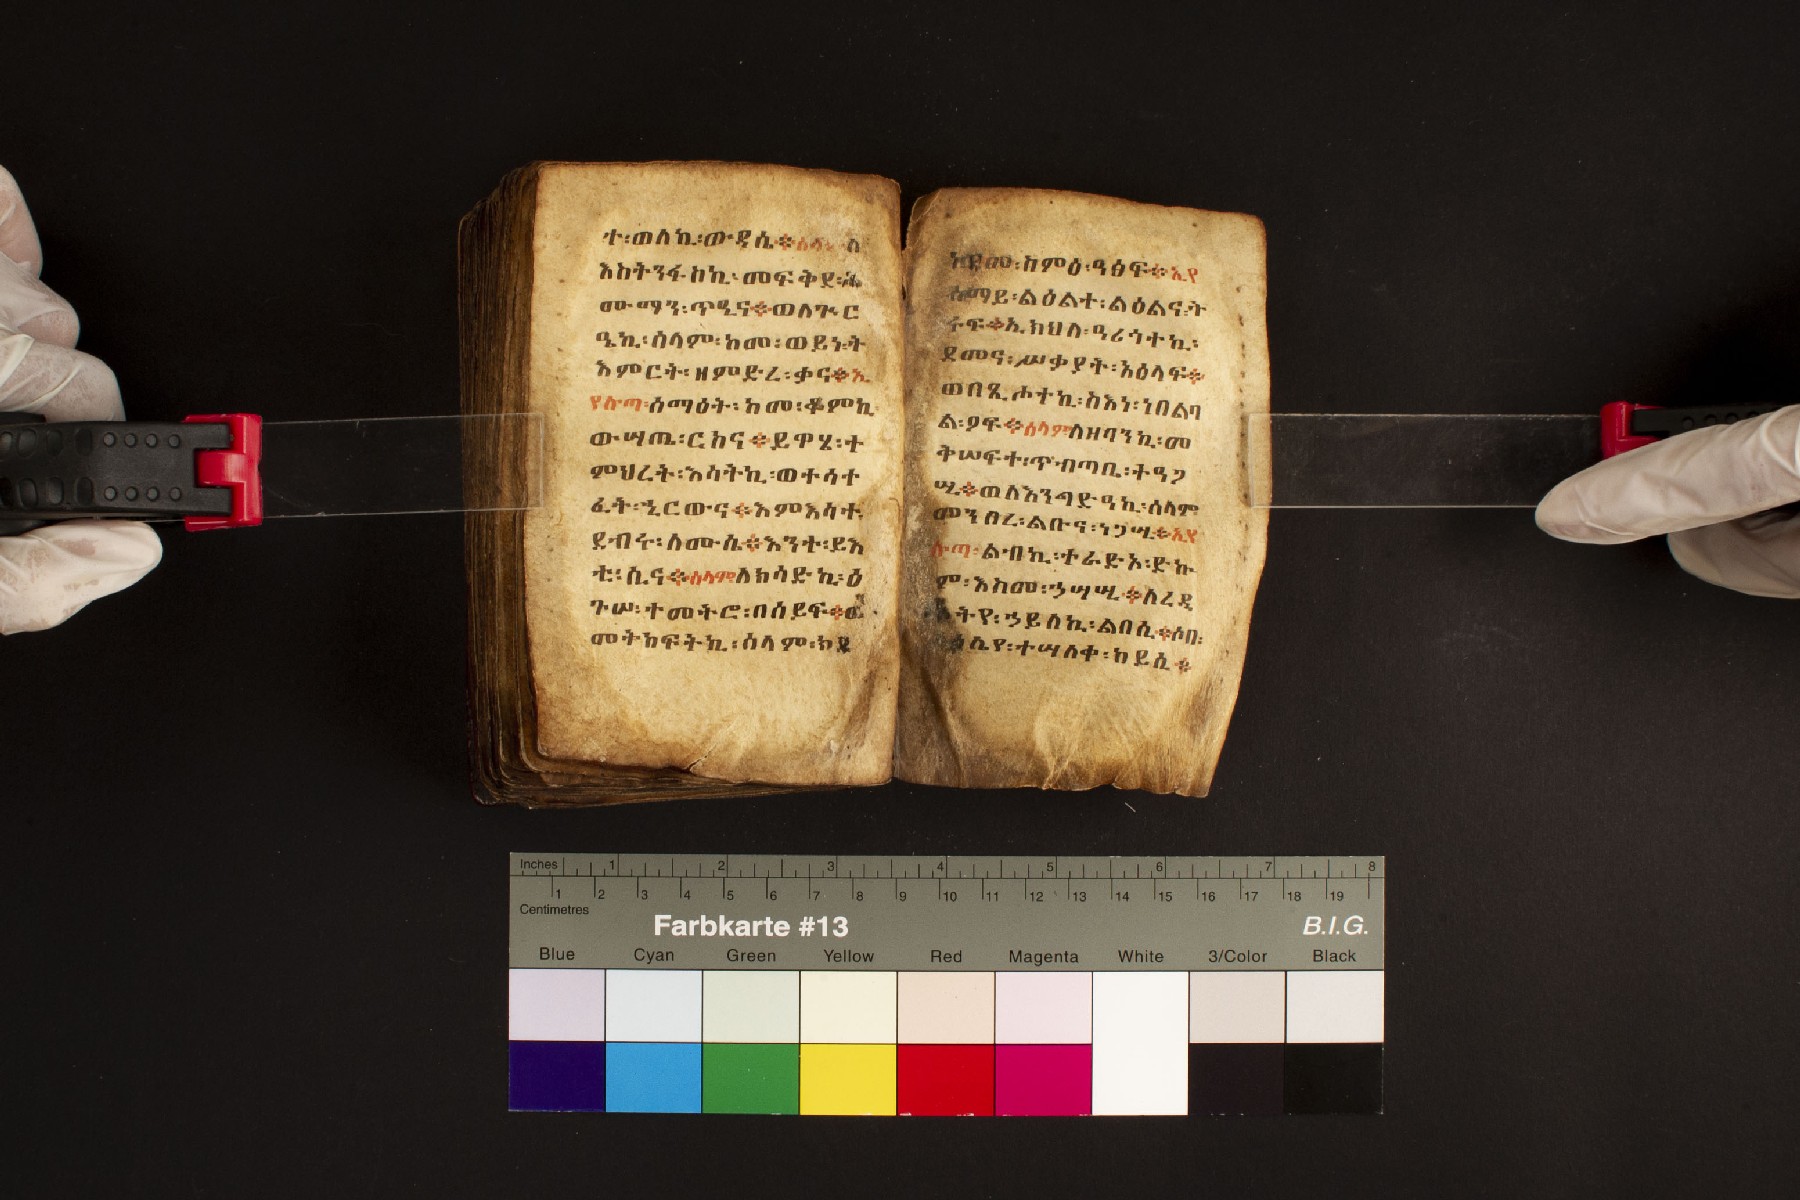 ተ፡ወለኪ፡ውዳሴ፨ሰላም፡ለ
እስትንፋስኪ፡መፍቅደ፡
ሙማን፡ጥዒና፨ወለጕር
ዔኪ፡ሰላም፡ከመ፡ወይነ፡ት
እምርት፡ዘምድረ፡ቃና፨ኢ
የሉጣ፡ሰማዕት፡ከመ፡ቆምኪ
ውሣጤ፡ርስና፨ይዋሄ፡ተ
ምህረት፡እሳትኪ፡ወተሳተ
ፈት፡ኂርውና፨እምእሳተ፡
ደብሩ፡ለሙሴ፨እንተ፡ይእ
ቲ፡ሲና፨ሰላም፡ለክሳድኪ፡ዕ
ጉሠ፡ተመትሮ፡በሰይፍ፨
መትከፍትኪ፡ሰላም፡
ከምዕ፡ዓፅፍ፨ኢየ
ሰማይ፡ልዕልተ፡ልዕልና፡ት
ሩፍ፨ኢክህለ፡ዓሪጎተኪ፡
ደመና፡ሥቃያት፡አዕላፍ፨
ወበጺሖተኪ፡ስእነ፡ነበልባ
ል፡ዖፍ፨ሰላም፡ለዘባንኪ፡መ
ቅሠፍተ፡ጥብጣቤ፡ትዓገ
ሢ፨ወለእንግድዓኪ፡ሰላም
መንበረ፡ልቡና፡ነጋሢ፨ኢየ
ሉጣ፡ልብኪ፡ተራድኦ፡ድኩ
ም፡እስመ፡ኃሣሢ፨አረጋ
ትየ፡ኃይለኪ፡ልበሲ፨ሶበ፡
ሲየ፡ተሣለቀ፡ከይሲ፨
Inches 1 2 3 4 5 6 7 8
1 2 3 4 5 6 7 8 9 10 11 12 13 14 15 16 17 18 19
Centimetres
Farbkarte #13 B.I.G.
Blue Cyan Green Yellow Red Magenta White 3/Color Black